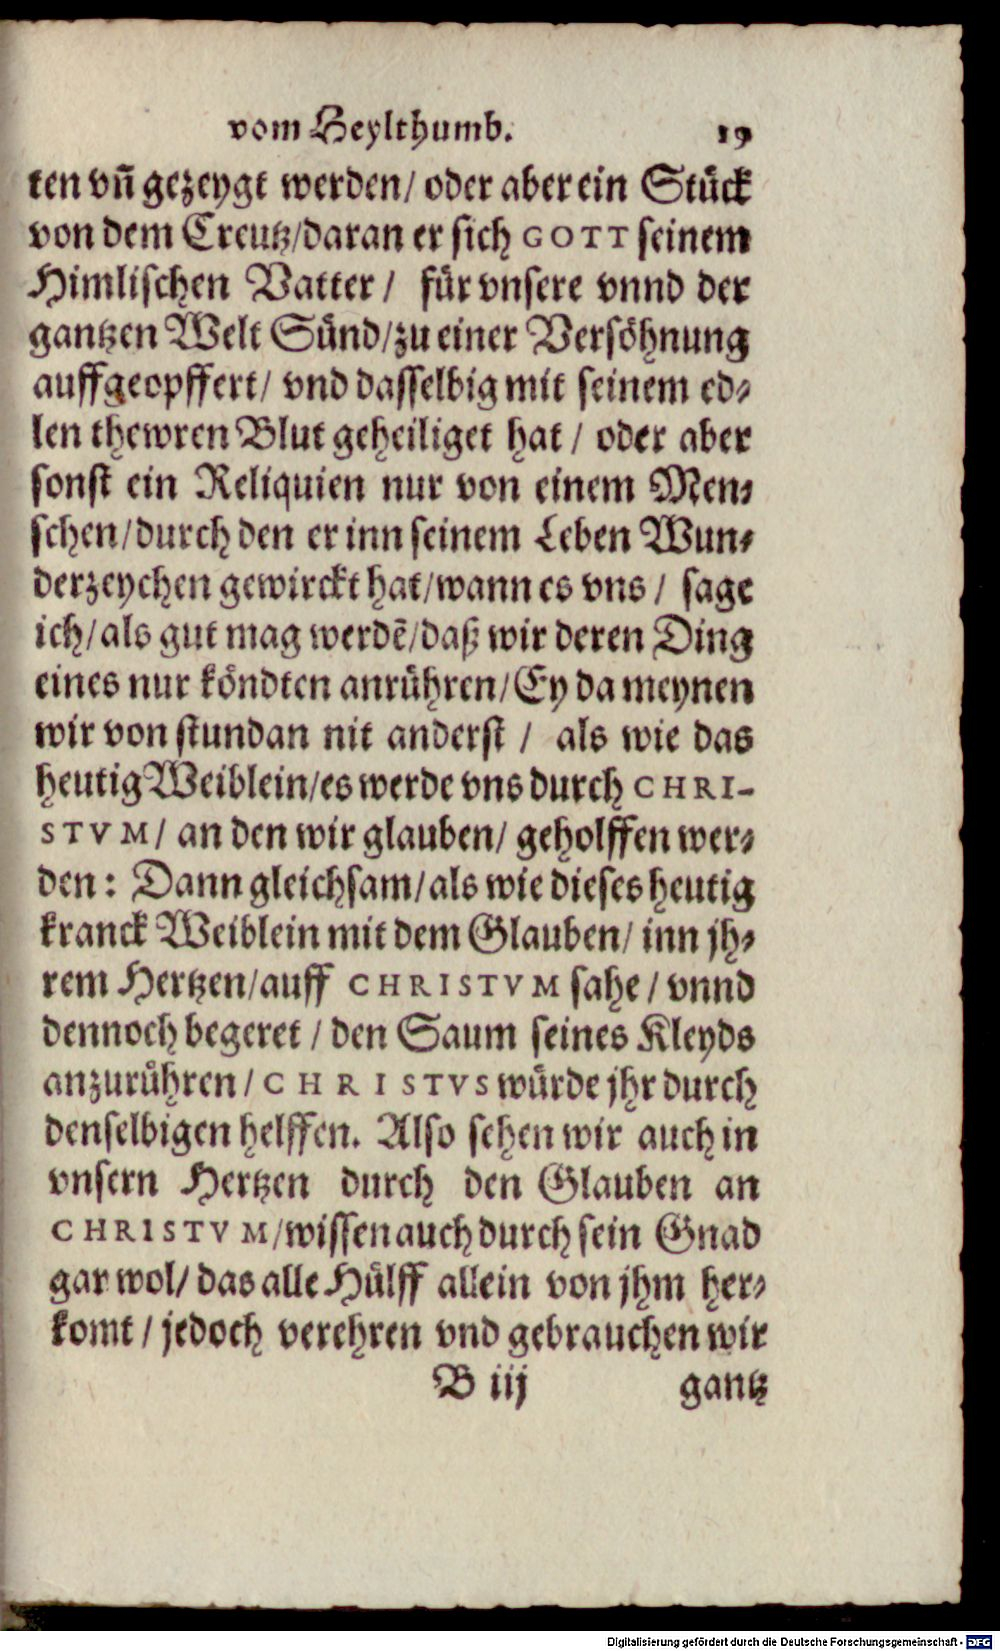 vom Heylthumb. 19
ten vñ gezeygt werden/ oder aber ein Stück
von dem Creutz/daran er sich GOTT seinem
Himlischen Vatter/ für vnsere vnnd der
gantzen Welt Sünd/zu einer Versöhnung
auffgeopffert/ vnd dasselbig mit seinem ed-
len thewren Blut geheiliget hat/ oder aber
sonst ein Reliquien nur von einem Men-
schen/durch den er inn seinem Leben Wun-
derzeychen gewirckt hat/wann es vns/ sage
ich/als gut mag werdẽ/daß wir deren Ding
eines nur köndten anrühren/Ey da meynen
wir von stundan nit anderst/ als wie das
heutig Weiblein/es werde vns durch CHRI-
STVM/ an den wir glauben/ geholffen wer-
den: Dann gleichsam/als wie dieses heutig
kranck Weiblein mit dem Glauben/ inn jh-
rem Hertzen/auff CHRISTVM sahe/ vnnd
dennoch begeret/ den Saum seines Kleyds
anzurühren/ CHRISTVS würde jhr durch
denselbigen helffen. Also sehen wir auch in
vnsern Hertzen durch den Glauben an
CHRISTVM/wissen auch durch sein Gnad
gar wol/ das alle Hülff allein von jhm her-
komt/ jedoch verehren vnd gebrauchen wir
B iij gantz
Digitalisierung gefördert durch die Deutsche Forschungsgemeinschaft - DFG